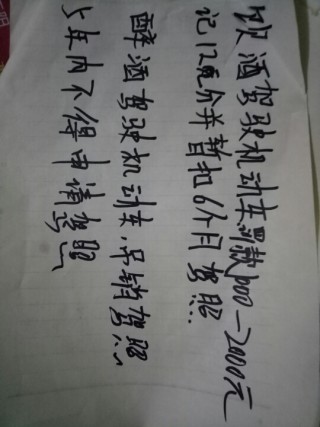 饮酒驾驶机动车罚款1000—2000元
记12分并暂扣6个月驾照.
醉酒驾驶机动车,吊销驾照
5年内不得申请驾照